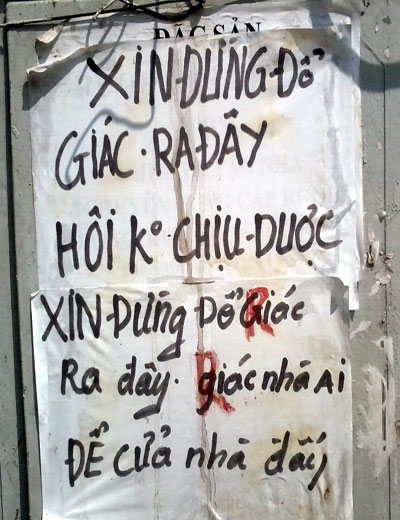 ĐẶC SẢN
XIN ĐỪNG ĐỔ
GIÁC · RA ĐÂY
HÔI Kº CHỊU DƯỢC
XIN Đừng Đổ Giác
Ra đây. giác nhà Ai
ĐỂ CửA nhà đấy